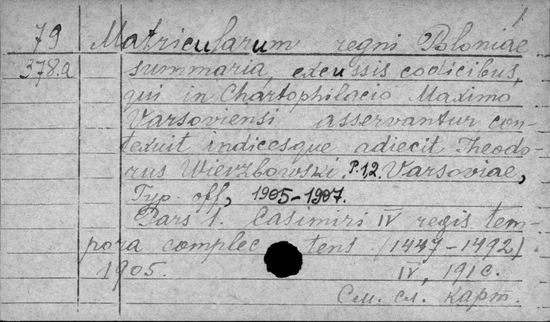 79 Matricularum regni Poloniae
378.a summaria, excussis codicibus,
qui in Chartophilacio Maximo
Varsoviensi asservantur con-
texuit indicesque adiecit Theodo-
rus Wierzbowski. P.1,2. Varsoviae,
Typ. off, 1905-1907.
Pars 1. Casimiri IV regis tem-
pora complec tens (1447-1492).
1905. IV, 191 с.
См. сл. карт.